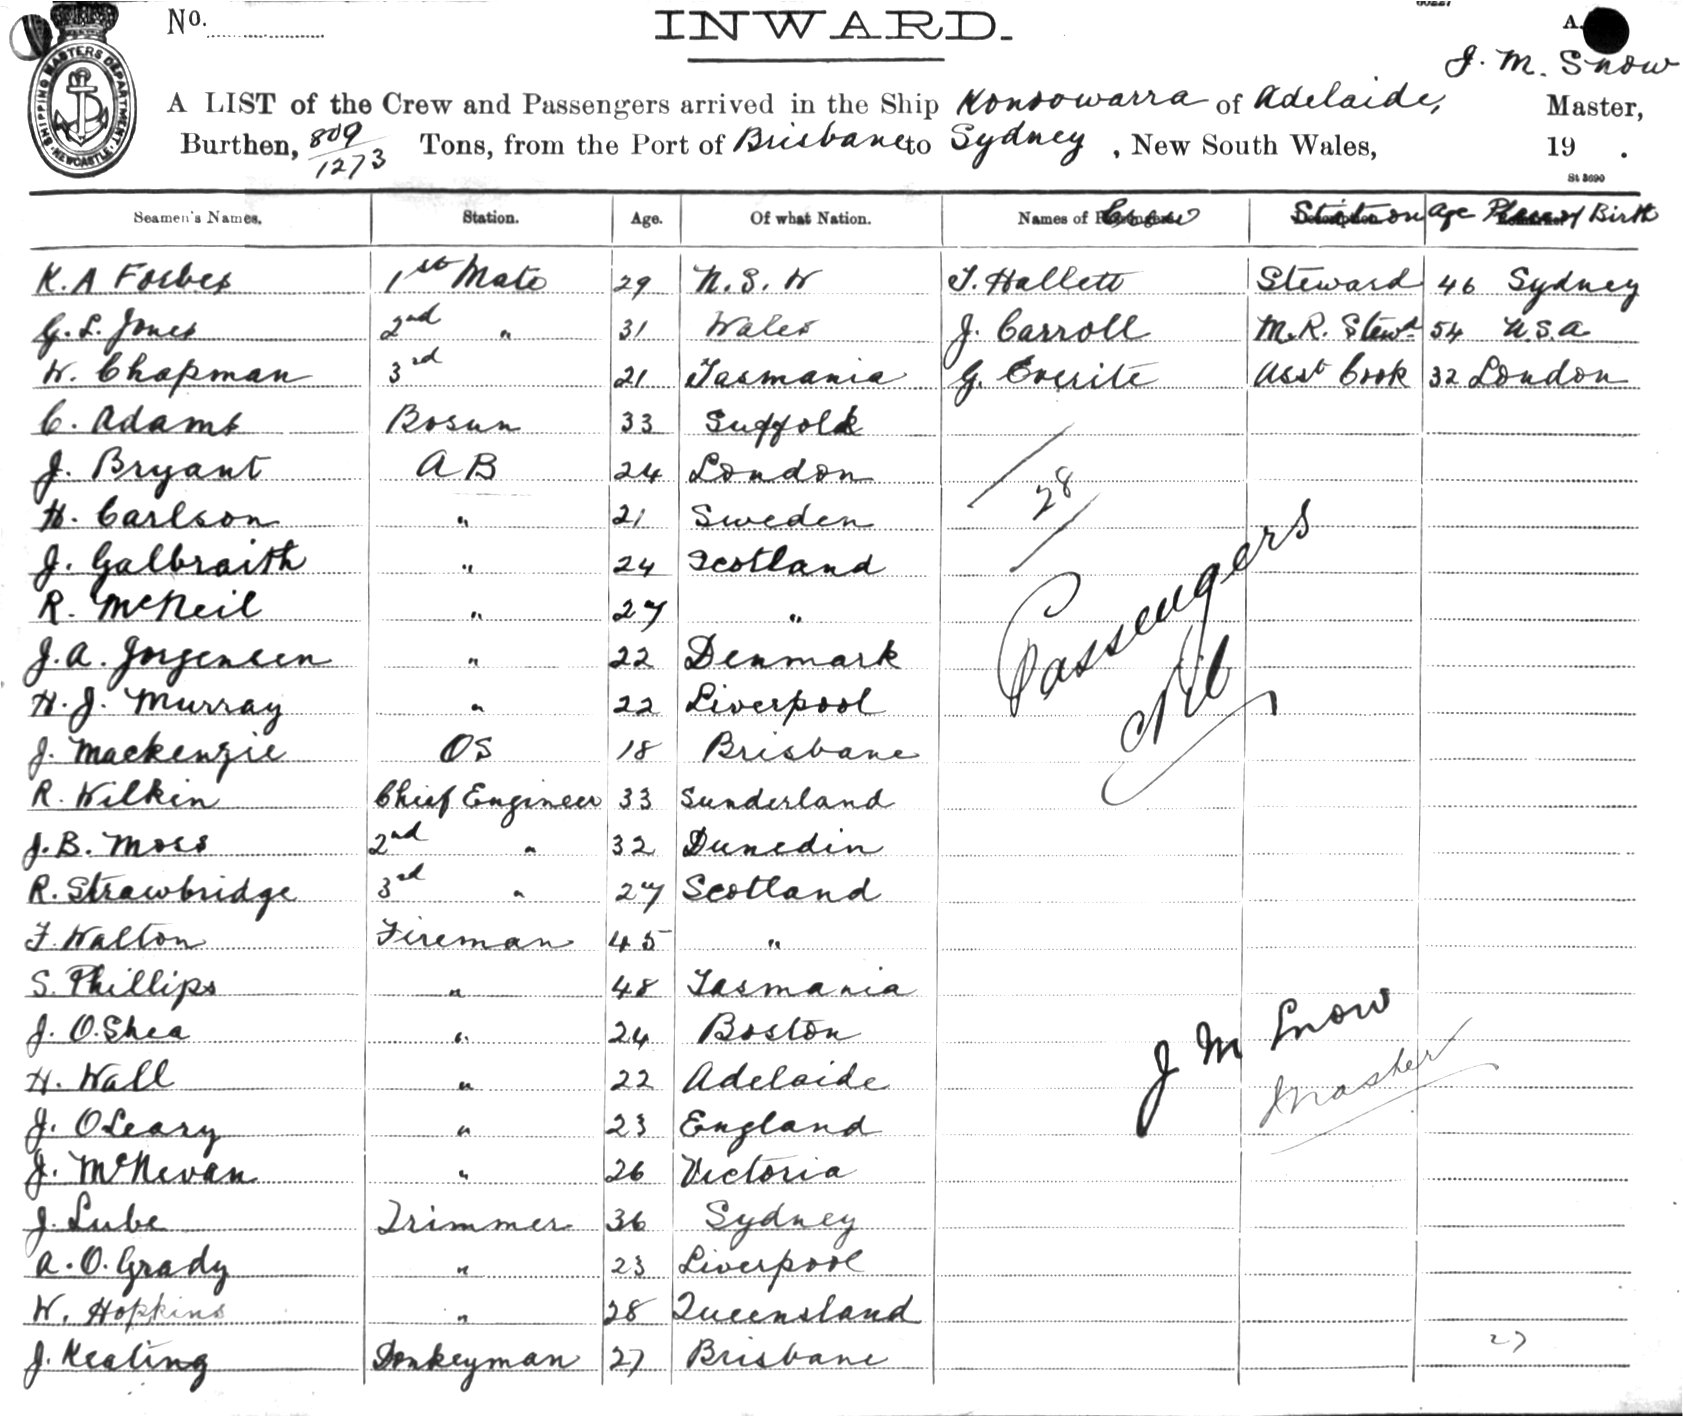 No.
INWARD.
J. M. Snow
SHIPPING MASTERS DEPARTMENT NEWCASTLE
A LIST of the Crew and Passengers arrived in the Ship Konoowarra of Adelaide, Master,
Burthen, 809/1273 Tons, from the Port of Brisbane to Sydney, New South Wales, 19 .
St 3690
Seamen's Names. Station. Age. Of what Nation. Names of Crew Station Age Place of Birth
K. A Forbes 1st Mate 29 N. S. W T. Hallett Steward 46 Sydney
G. L. Jones 2nd " 31 Wales J. Carroll M. R. Stewd 54 U. S. A
W. Chapman 3rd 21 Tasmania G. Everite Asst Cook 32 London
C. Adams Bosun 33 Suffolk
J. Bryant A B 24 London
28
H. Carlson " 21 Sweden
J. Galbraith " 24 Scotland
R. McNeil " 27 "
Passengers
J. A. Jorgensen " 22 Denmark
Nil
H. J. Murray " 22 Liverpool
J. Mackenzie OS 18 Brisbane
R. Wilkin Chief Engineer 33 Sunderland
J. B. Moss 2nd " 32 Dunedin
R. Strawbridge 3rd " 27 Scotland
F. Walton Fireman 45 "
S. Phillips " 48 Tasmania
J. O. Shea " 24 Boston
J M Snow
H. Wall " 22 Adelaide
Master
J. OLeary " 23 England
J. McNevan " 26 Victoria
J. Lube Trimmer 36 Sydney
A. O. Grady " 23 Liverpool
W. Hopkins " 28 Queensland
J. Keating Donkeyman 27 Brisbane
27